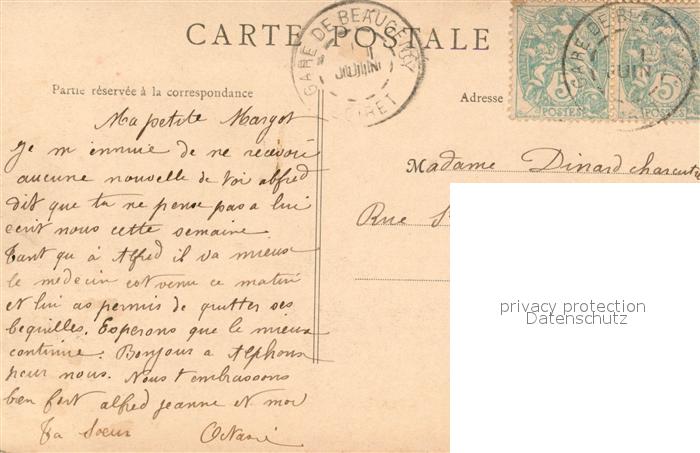 CARTE POSTALE
GARE DE BEAUGENCY
1
JUIN
LOIRET
GARE DE BEAU
1
JUIN
5
POSTES
5
POSTES
Partie réservée à la correspondance
Adresse
Ma petite Margot
Je m ennuie de ne recevoir
aucune nouvelle de toi alfred
dit que tu ne pense pas a lui
ecrit nous cette semaine.
Tant qu à Alfred il va mieux
le medecin est venu ce matin
et lui as permis de quitter ses
bequilles. Esperons que le mieux
continue. Bonjour a Alphons
pour nous. Nous t embrassons
bien fort alfred jeanne et moi
Ta Soeur
Madame Dinard charcuti
Rue S
privacy protection
Datenschutz